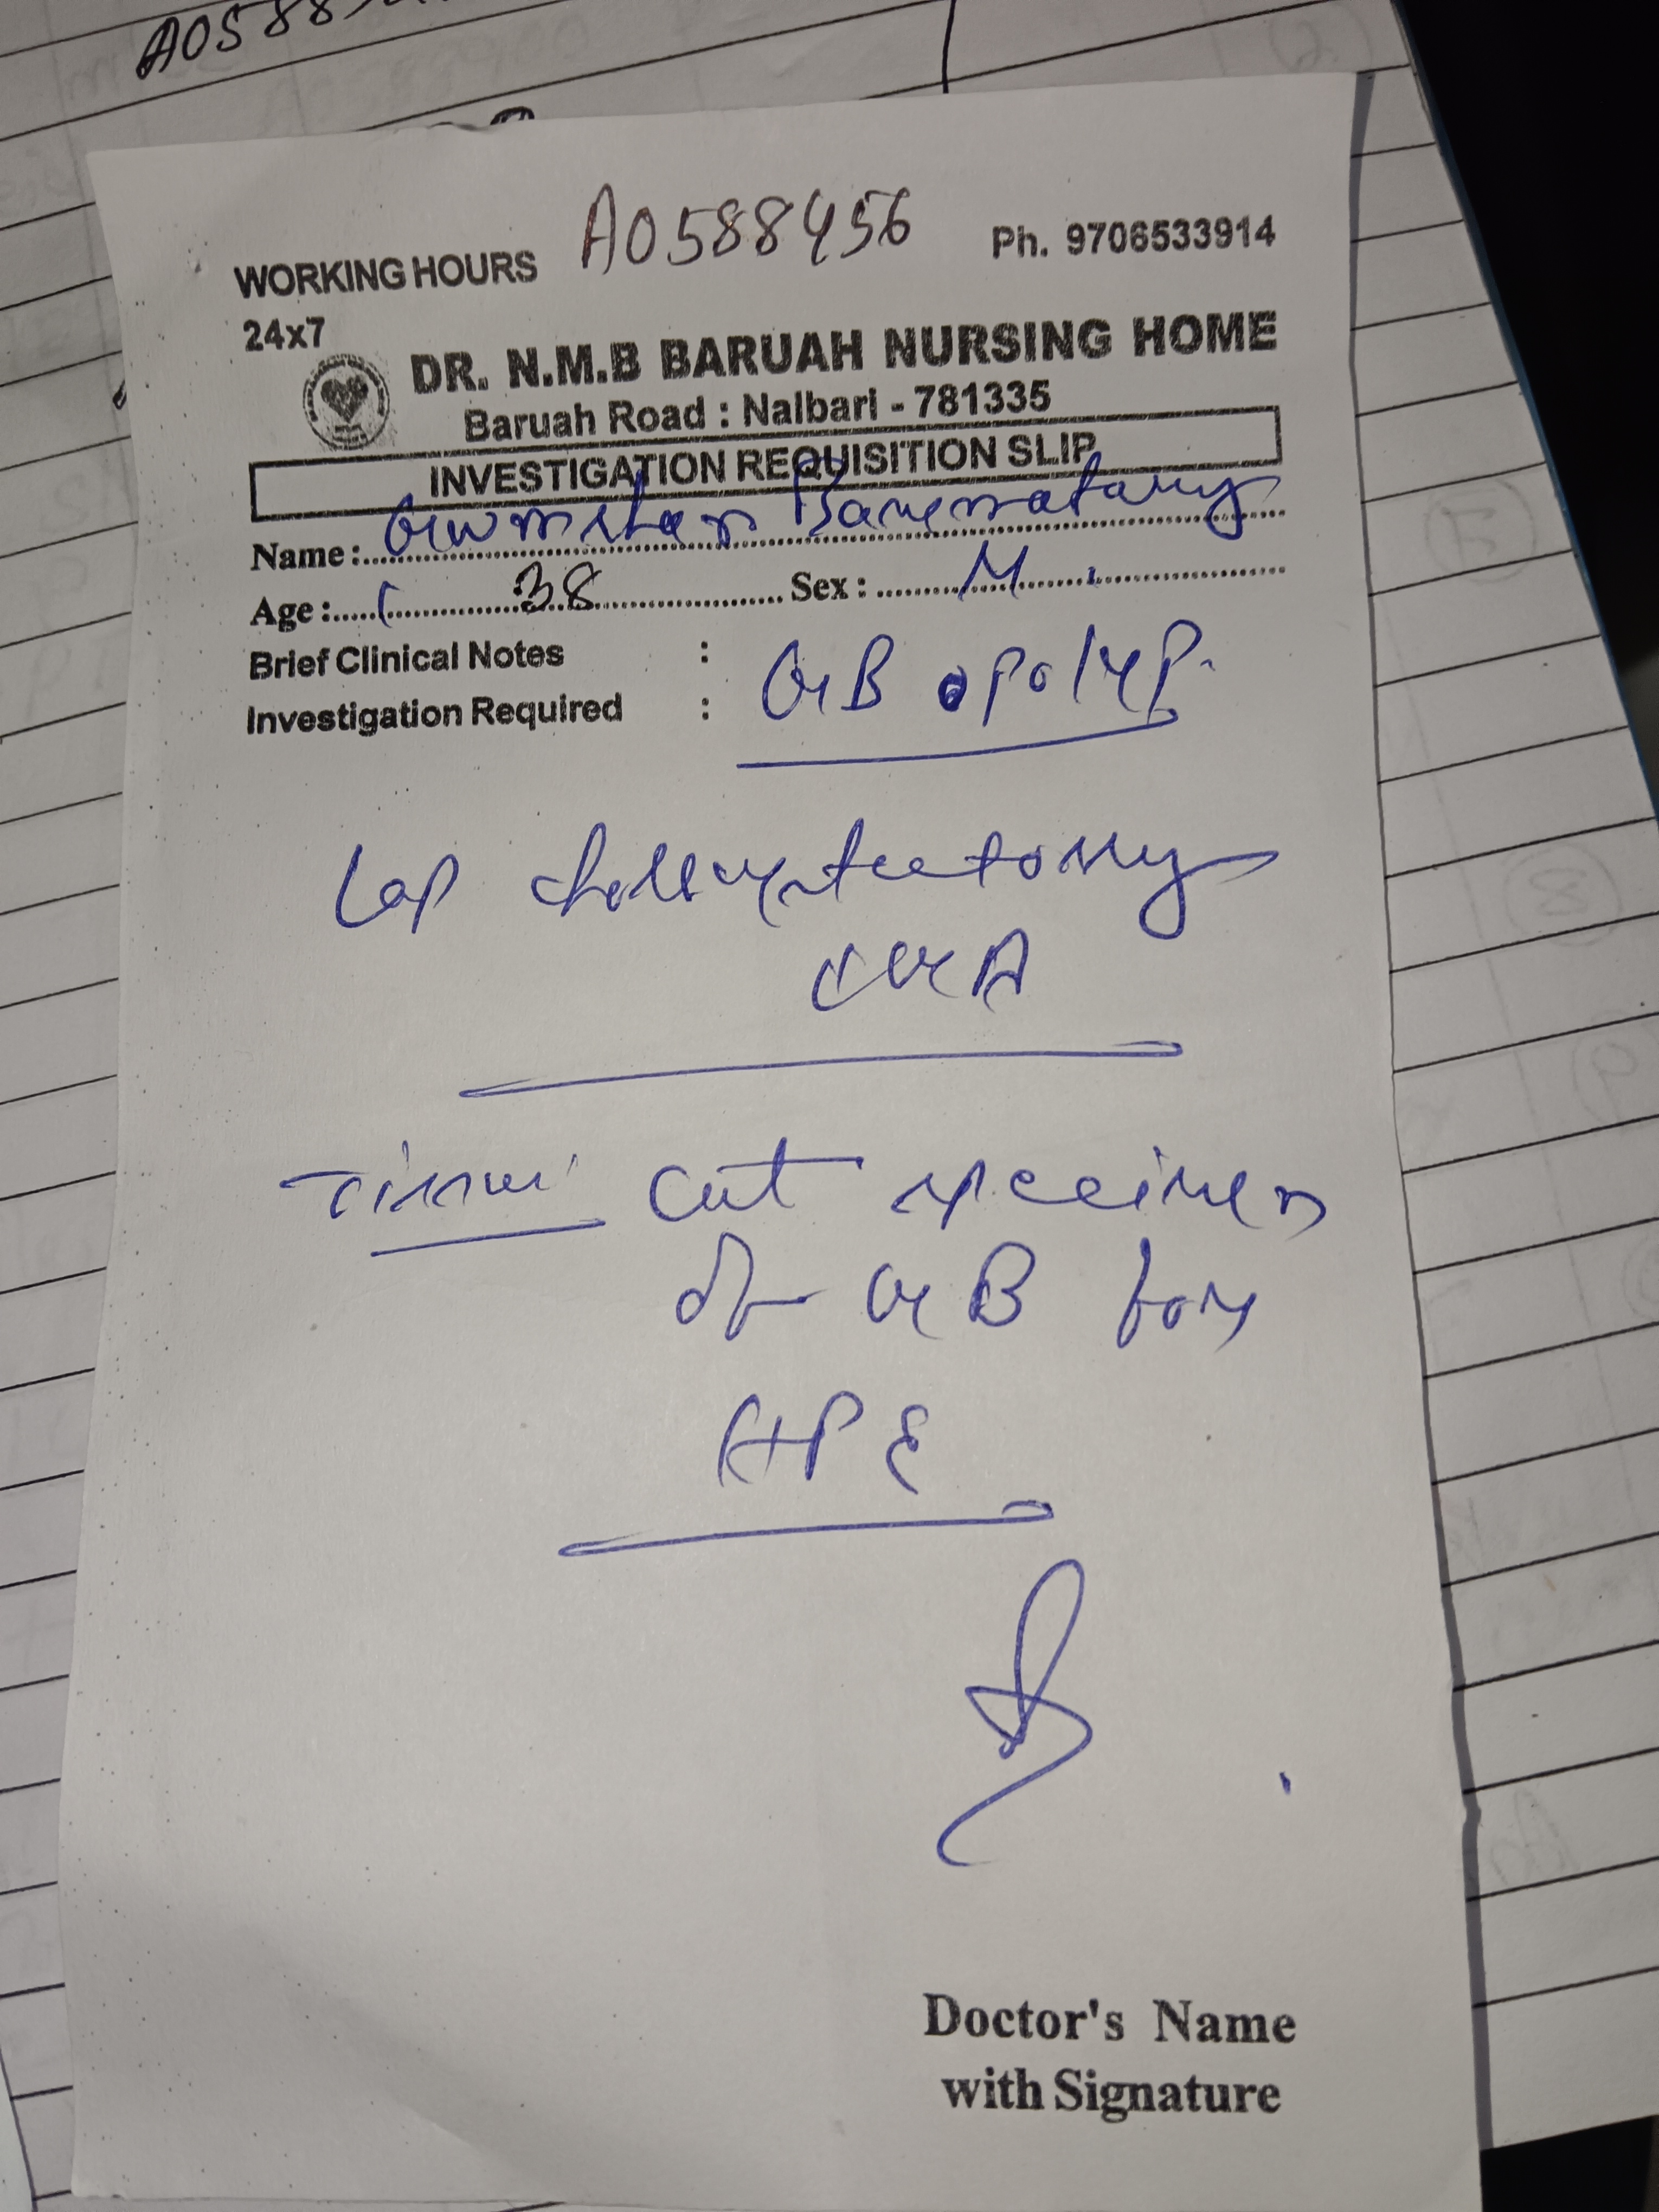 A0588
A0588456
WORKING HOURS Ph. 9706533914
24x7
DR. N.M.B BARUAH NURSING HOME
Baruah Road : Nalbari - 781335
INVESTIGATION REQUISITION SLIP
Name :
Age : 38 Sex : M
Brief Clinical Notes :
Investigation Required : GB polyp
Lap
GA
Tissue cut specimen
of GB for
HPE
Doctor's Name
with Signature